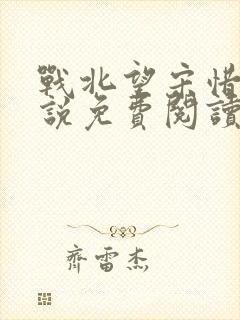 戰北望宋惜
說免費閱讀
齊雷杰